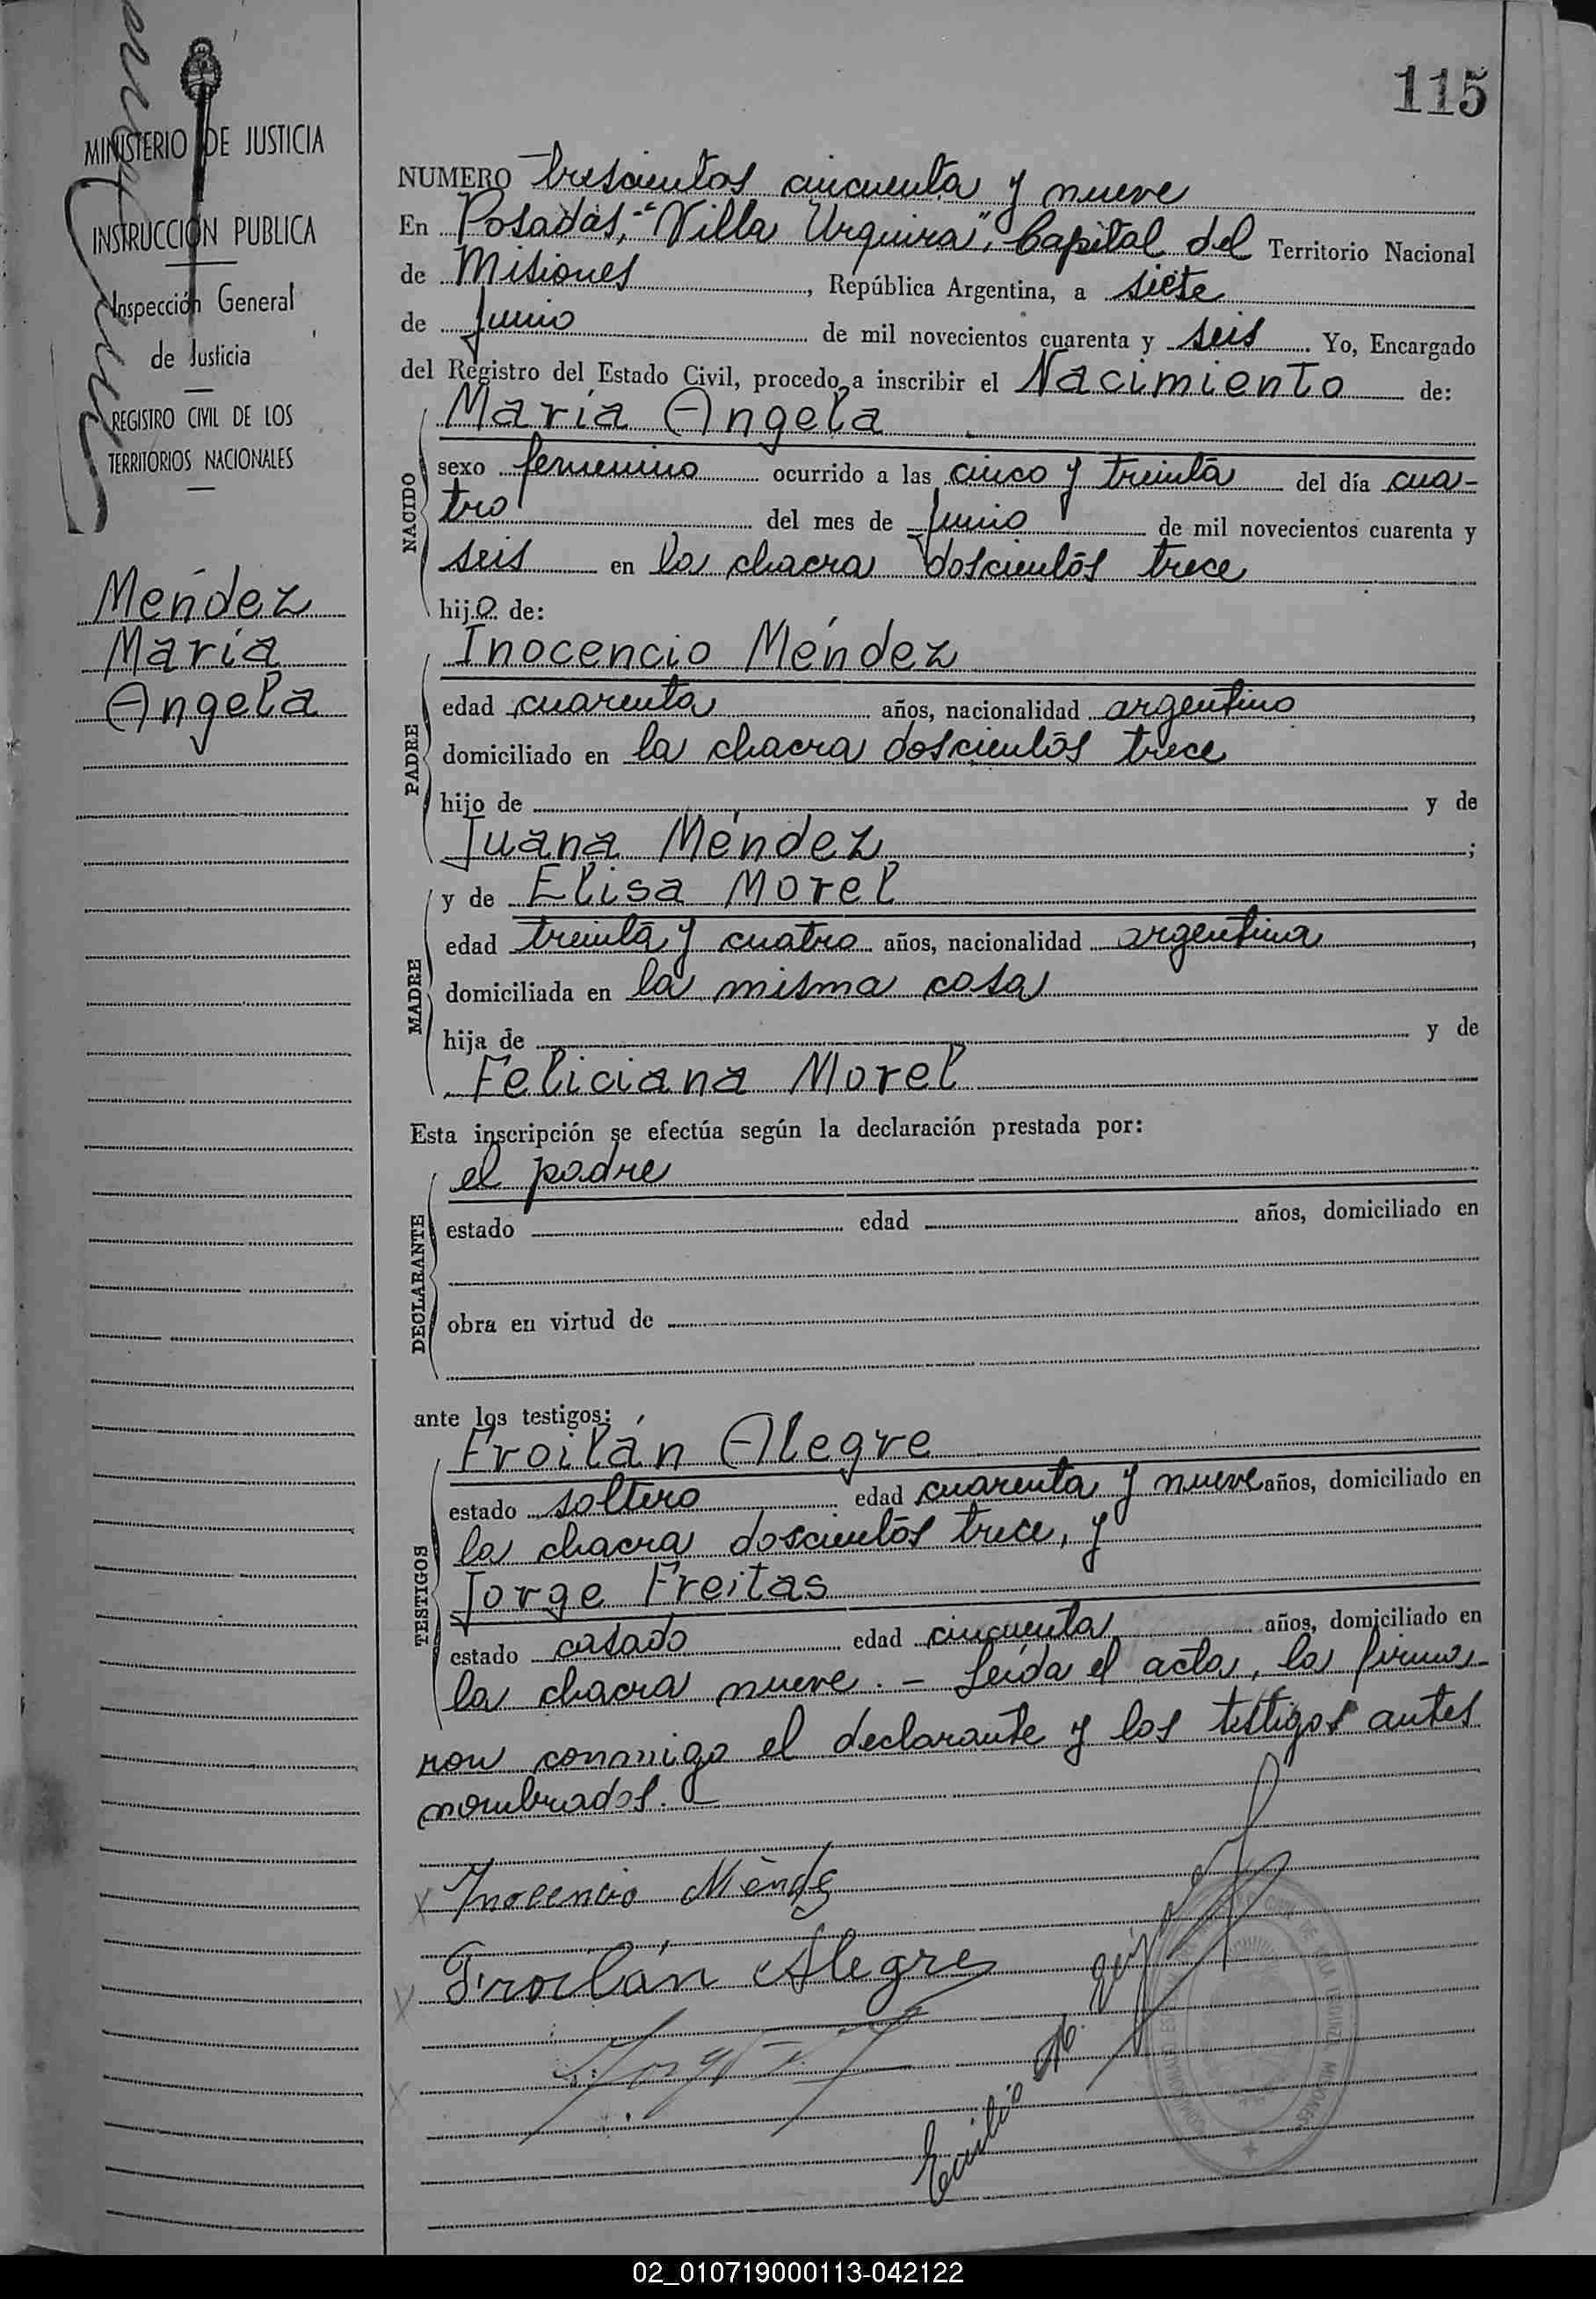 115
MINISTERIO DE JUSTICIA
INSTRUCCIÓN PUBLICA
Inspección General
de Justicia
REGISTRO CIVIL DE LOS
TERRITORIOS NACIONALES
Méndez
María
Angela
NUMERO trescientos cincuenta y nueve
En Posadas, "Villa Urquiza", Capital del Territorio Nacional
de Misiones, República Argentina, a siete
de junio de mil novecientos cuarenta y seis Yo, Encargado
del Registro del Estado Civil, procedo a inscribir el Nacimiento de:
María Angela
NACIDO
sexo femenino ocurrido a las cinco y treinta del día cua-
tro del mes de junio de mil novecientos cuarenta y
seis en la chacra doscientos trece
hija de:
Inocencio Méndez
PADRE
edad cuarenta años, nacionalidad argentino,
domiciliado en la chacra doscientos trece
hijo de y de
Juana Méndez;
y de Elisa Morel
MADRE
edad treinta y cuatro años, nacionalidad argentina,
domiciliada en la misma casa
hija de y de
Feliciana Morel
Esta inscripción se efectúa según la declaración prestada por:
el padre
DECLARANTE
estado edad años, domiciliado en
obra en virtud de
ante los testigos:
Froilán Alegre
TESTIGOS
estado soltero edad cuarenta y nueve años, domiciliado en
la chacra doscientos trece, y
Jorge Freitas
estado casado edad cincuenta años, domiciliado en
la chacra nueve. - Leída el acta, la firma-
ron conmigo el declarante y los testigos antes
nombrados. -
Inocencio Méndez
Froilán Alegre
Emilio
02_010719000113-042122